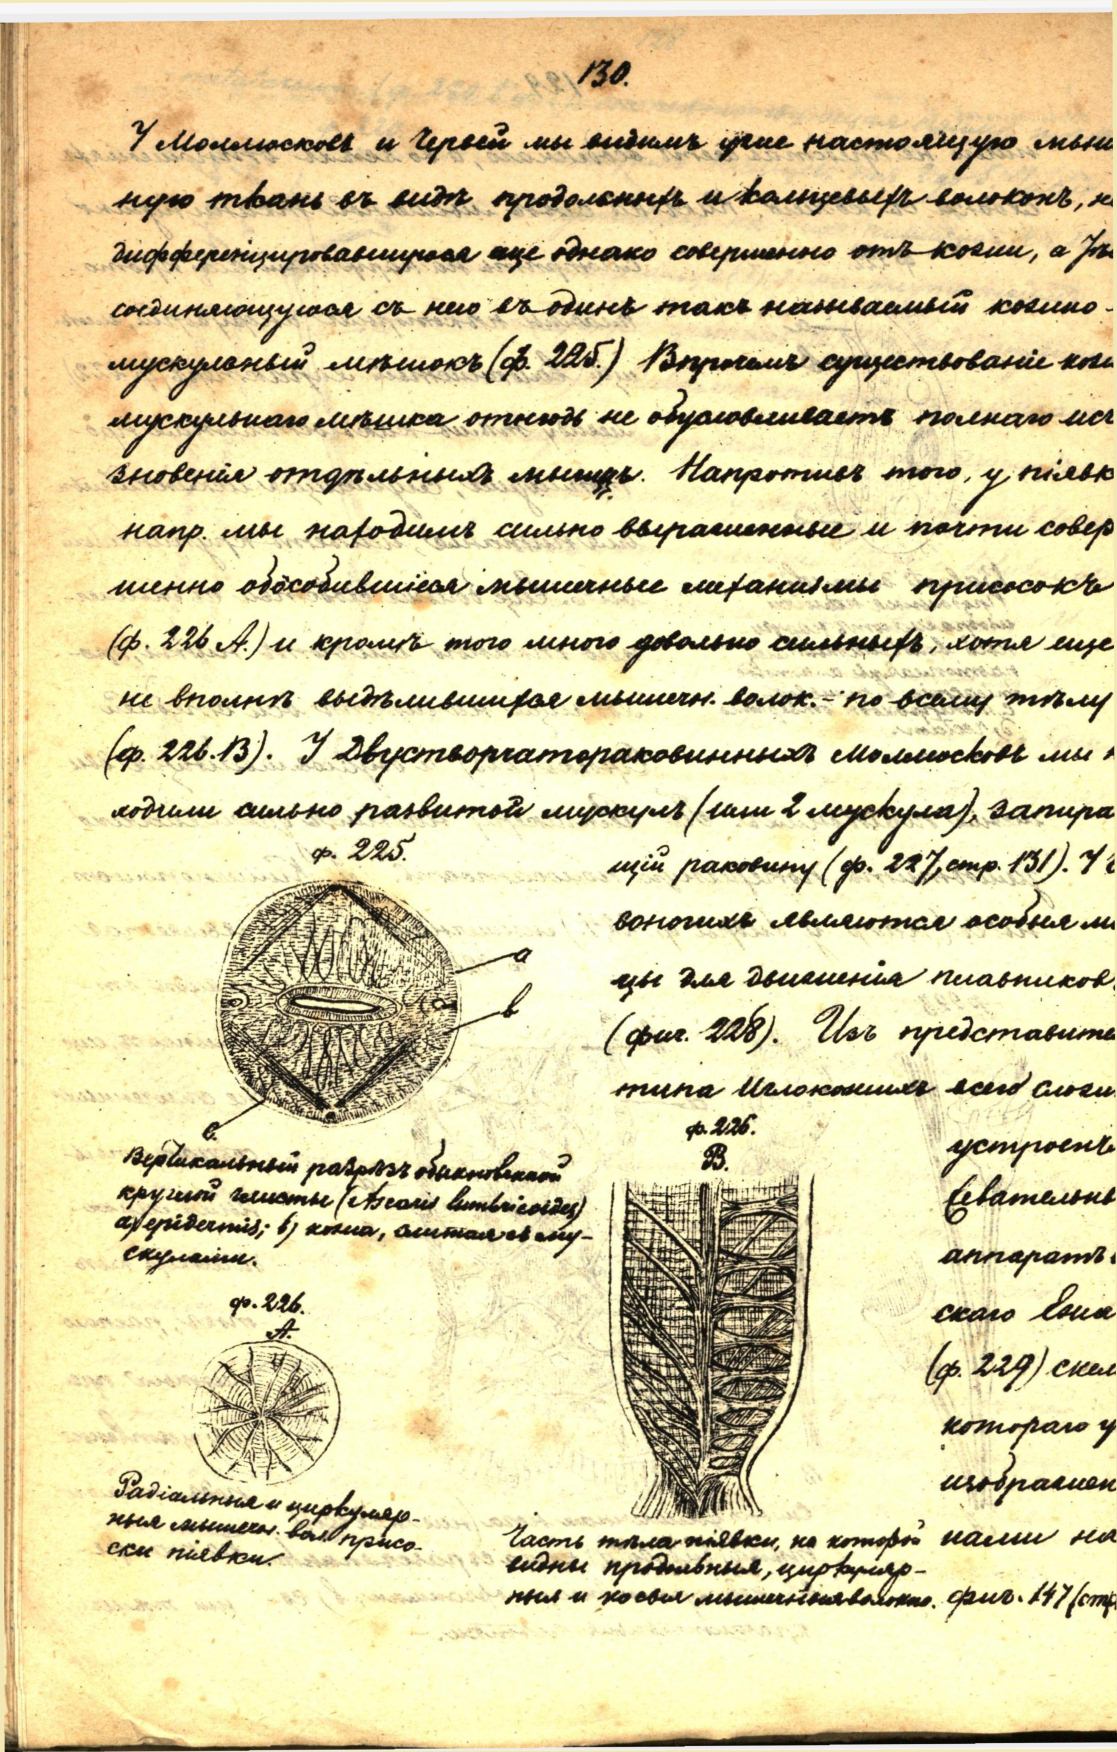 130.
У Моллюсковъ и Червей мы видимъ уже настоящую мыш
ную ткань въ видѣ продольныхъ и кольцевыхъ волоконъ, н
дифференцировавшуюся еще однако совершенно отъ кожи, а
соединяющуюся съ нею въ одинъ такъ называемый кожно-
мускульный мѣшокъ (ф. 225.) Впрочемъ существованіе кож
мускульнаго мѣшка отнюдь не обусловливаетъ полнаго исч
зновенія отдѣльныхъ мышцъ. Напротивъ того, у піявк
напр. мы находимъ сильно выраженные и почти совер
шенно обособившіеся мышечные механизмы присосокъ
(ф. 226 А.) и кромѣ того много довольно сильныхъ, хотя еще
не вполнѣ выдѣлившихся мышечн. волок. - по всему тѣлу
(ф. 226.В). У Двустворчатораковинныхъ Моллюсковъ мы н
ходили сильно развитой мускулъ (или 2 мускула), запира
ф. 225.
щій раковину (ф. 227, стр. 131). У
воногихъ являются особыя мы
цы для движенія плавников
(фиг. 228). Изъ представите
типа Иглокожихъ всего сложн
a
в
с.
Вертикальный разрѣзъ обыкновенной
круглой глисты (Ascaris lumbricoides)
a) epidermis; b) кожа, слитая съ му-
скулами.
ф. 226.
В.
устроенъ
жевательны
аппаратъ
скаго Ежа
(ф. 229) скел
котораго у
изображен
нами на
фиг. 147 (стр.
ф. 226.
А.
Радіальныя и циркуляр-
ныя мышечн. вол. присо-
ски піявки.
Часть тѣла піявки, на которой
видны продольныя, циркуляр-
ныя и косыя мышечныя волокна.